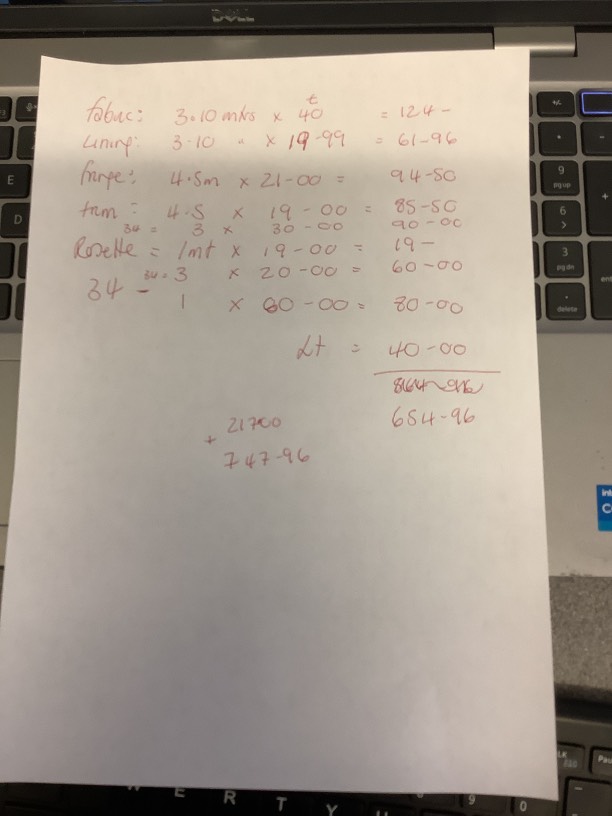 DELL
fabric: 3.10 mtrs x 40 t = 124-
Lining: 3.10 " x 19-99 = 61-96
fringe: 4.5m x 21-00 = 94-50
trim = 4.5 x 19-00 = 85-50
34 = 3 x 30-00 90-00
Rosette = 1mt x 19-00 = 19-
34 = 3 x 20-00 = 60-00
34 -
1 x 80-00 = 80-00
Lt = 40-00
654-96
21700
+
747-96
E
D
9
pg up
6
3
pg dn
delete
W E R T Y
9 0